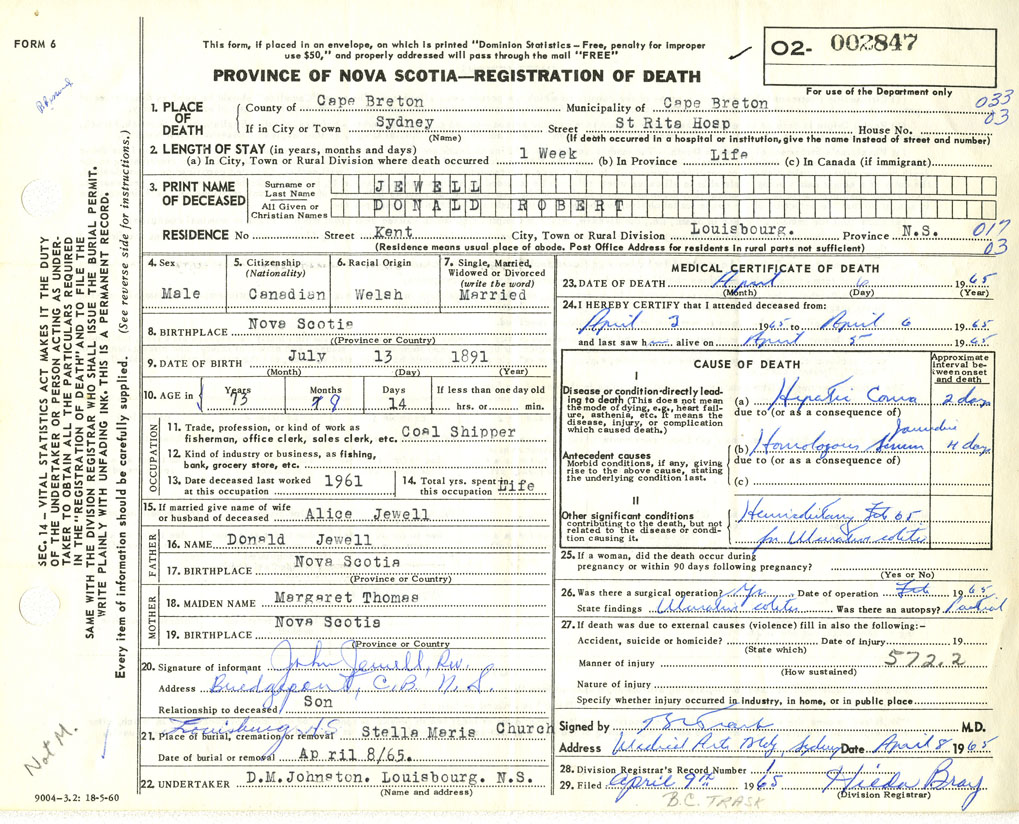 FORM 6
This form, if placed in an envelope, on which is printed "Dominion Statistics—Free, penalty for improper
use $50," and properly addressed will pass through the mail "FREE"
PROVINCE OF NOVA SCOTIA—REGISTRATION OF DEATH
02- 002847
For use of the Department only
033
03
1. PLACE OF DEATH
County of Cape Breton Municipality of Cape Breton
If in City or Town Sydney Street St Rita Hosp House No.
(Name) (If death occurred in a hospital or institution, give the name instead of street and number)
2. LENGTH OF STAY (in years, months and days)
(a) In City, Town or Rural Division where death occurred 1 Week (b) In Province Life (c) In Canada (if immigrant)
3. PRINT NAME OF DECEASED
Surname or Last Name JEWELL
All Given or Christian Names DONALD ROBERT
RESIDENCE No Street Kent City, Town or Rural Division Louisbourg. Province N.S.
017
03
(Residence means usual place of abode. Post Office Address for residents in rural parts not sufficient)
4. Sex Male
5. Citizenship (Nationality) Canadian
6. Racial Origin Welsh
7. Single, Married, Widowed or Divorced (write the word) Married
8. BIRTHPLACE Nova Scotia
(Province or Country)
9. DATE OF BIRTH July 13 1891
(Month) (Day) (Year)
10. AGE in Years 73 Months 9 Days 14 If less than one day old hrs. or min.
OCCUPATION
11. Trade, profession or kind of work as fisherman, office clerk, sales clerk, etc. Coal Shipper
12. Kind of industry or business, as fishing, bank, grocery store, etc.
13. Date deceased last worked at this occupation 1961
14. Total yrs. spent in this occupation Life
15. If married give name of wife or husband of deceased Alice Jewell
FATHER
16. NAME Donald Jewell
17. BIRTHPLACE Nova Scotia
(Province or Country)
MOTHER
18. MAIDEN NAME Margaret Thomas
19. BIRTHPLACE Nova Scotia
(Province or Country
20. Signature of informant John Jewell, Rev.
Address Bridgeport, C.B. N.S.
Relationship to deceased Son
Louisburg N.S.
21. Place of burial, cremation or removal Stella Maris Church
Date of burial or removal Ap ril 8/65.
22. UNDERTAKER D.M.Johnston. Louisbourg. N.S.
(Name and address)
MEDICAL CERTIFICATE OF DEATH
23. DATE OF DEATH April 6 1965
(Month) (Day) (Year)
24. I HEREBY CERTIFY that I attended deceased from:
April 3 1965 to April 6 1965
and last saw h alive on April 5 1965
CAUSE OF DEATH
Approximate interval between onset and death
I
Disease or condition directly leading to death (This does not mean the mode of dying, e.g., heart failure, asthenia, etc. It means the disease, injury, or complication which caused death.)
(a) Hepatic Coma 2 days
due to (or as a consequence of)
Antecedent causes
Morbid conditions, if any, giving rise to the above cause, stating the underlying condition last.
(b) Homologous serum jaundice 4 days
due to (or as a consequence of)
(c)
II
Other significant conditions
contributing to the death, but not related to the disease or condition causing it.
Feb 65
for Ulcerative colitis
25. If a woman, did the death occur during
pregnancy or within 90 days following pregnancy?
(Yes or No)
26. Was there a surgical operation? Yes Date of operation Feb 1965
State findings Ulcerative colitis Was there an autopsy? Partial
27. If death was due to external causes (violence) fill in also the following:—
Accident, suicide or homicide? Date of injury 19
(State which)
Manner of injury 572.2
(How sustained)
Nature of injury
Specify whether injury occurred in industry, in home, or in public place
Signed by B C Trask M.D.
Address Medical Art Bldg Sydney Date April 8 1965
28. Division Registrar's Record Number 1
29. Filed April 9th 1965 Hilda Bray
B.C. TRASK (Division Registrar)
SEC. 14 — VITAL STATISTICS ACT MAKES IT THE DUTY
OF THE UNDERTAKER OR PERSON ACTING AS UNDER-
TAKER TO OBTAIN ALL THE PARTICULARS REQUIRED
IN THE "REGISTRATION OF DEATH" AND TO FILE THE
SAME WITH THE DIVISION REGISTRAR WHO SHALL ISSUE THE BURIAL PERMIT.
WRITE PLAINLY WITH UNFADING INK. THIS IS A PERMANENT RECORD.
Every item of information should be carefully supplied. (See reverse side for instructions.)
Not M.
9004-3.2: 18-5-60